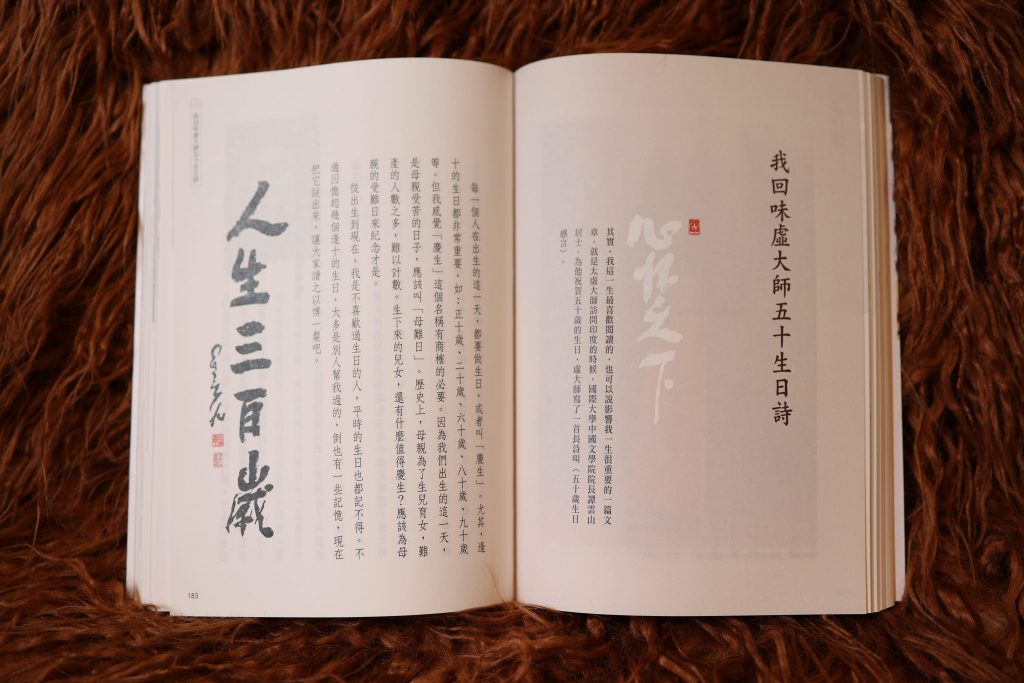 我回味虛大師五十生日詩
其實，我這一生最喜歡閱讀的，也可以說影響我一生很重要的一篇文
章，就是太虛大師訪問印度的時候，國際大學中國文學院院長譚雲山
居士，為他祝賀五十歲的生日，虛大師寫了一首長詩叫〈五十歲生日
感言〉。
心懷天下
每一個人在出生的這一天，都要做生日，或者叫「慶生」。尤其，逢
十的生日都非常重要，如：正十歲、二十歲、六十歲、八十歲、九十歲
等。但我感覺「慶生」這個名稱有商榷的必要。因為我們出生的這一天，
是母親受苦的日子，應該叫「母難日」。歷史上，母親為了生兒育女，難
產的人數之多，難以計數。生下來的兒女，還有什麼值得慶生？應該為母
親的受難日來紀念才是。
從出生到現在，我是不喜歡過生日的人，平時的生日也都記不得。不
過回憶起幾個逢十的生日，大多是別人幫我過的，倒也有一些記憶，現在
把它說出來，讓大家讀之以博一粲吧。
人生三百歲
我回味虛大師五十生日詩
183